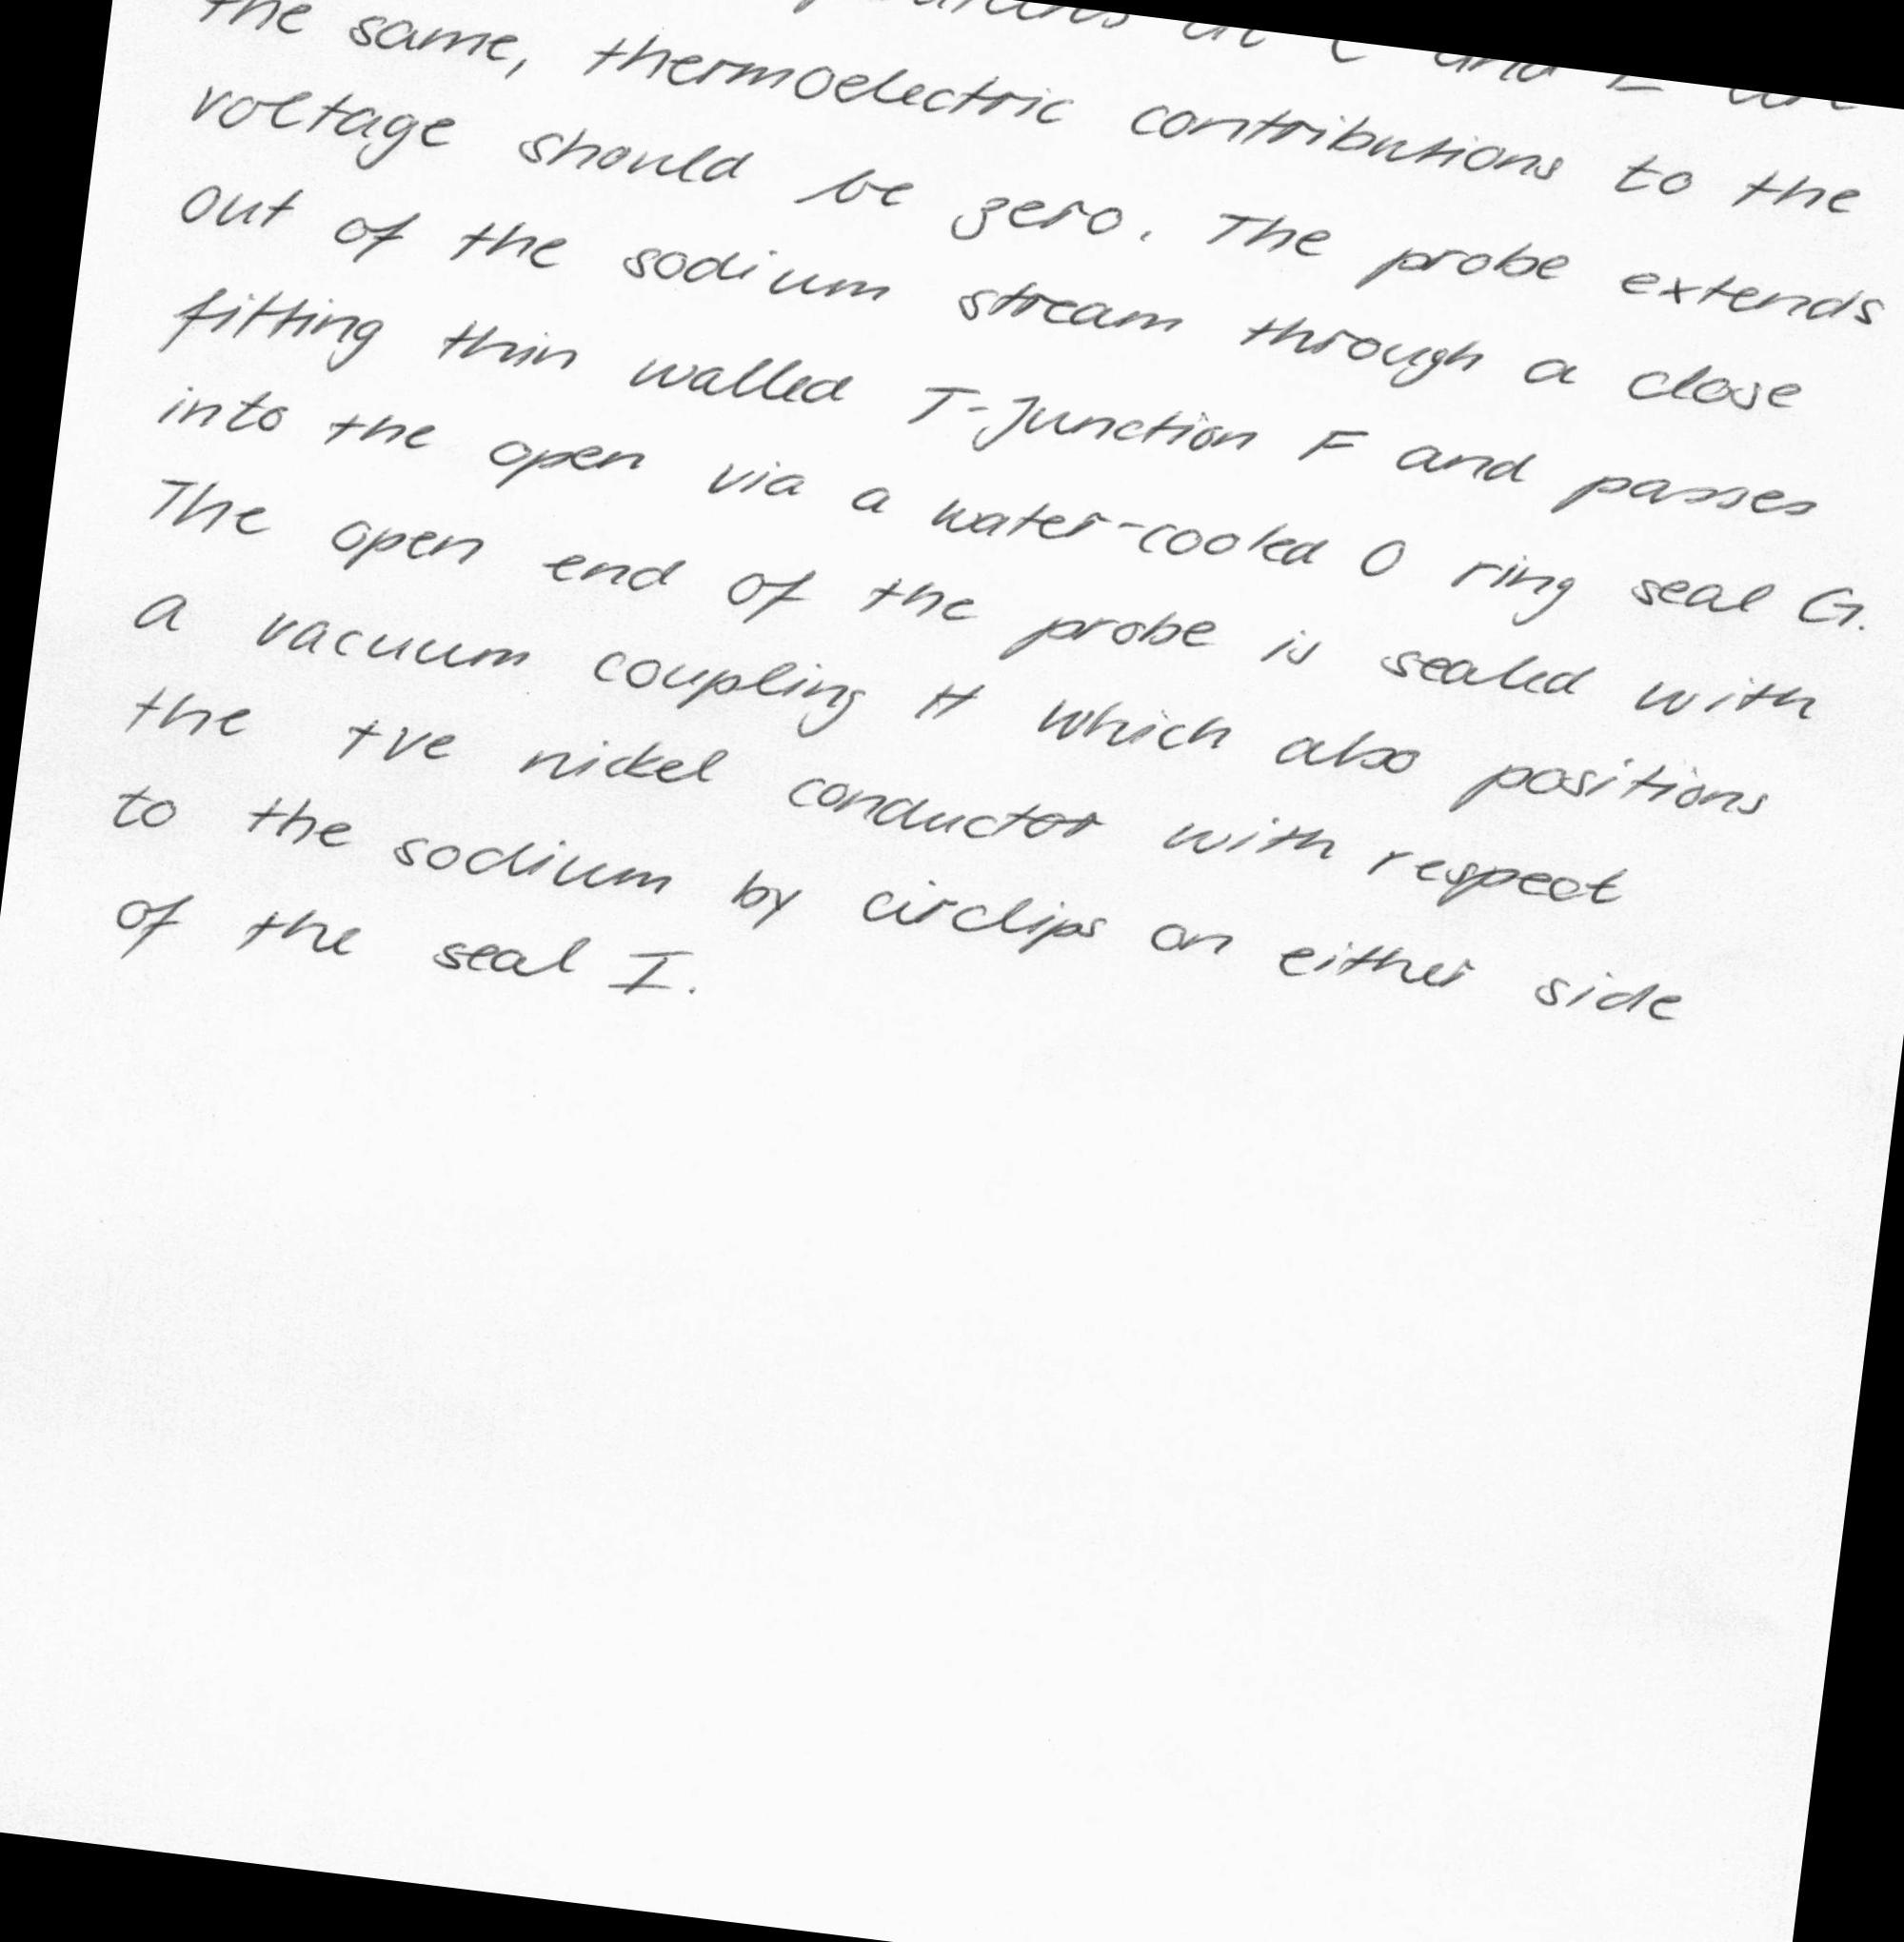 at C and E are
the same, thermoelectric contributions to the
voltage should be zero. The probe extends
out of the sodium stream through a close
fitting thin walled T-Junction F and passes
into the open via a water-cooled O ring seal G.
The open end of the probe is sealed with
a vacuum coupling H which also positions
the +ve nickel conductor with respect
to the sodium by circlips on either side
of the seal I.